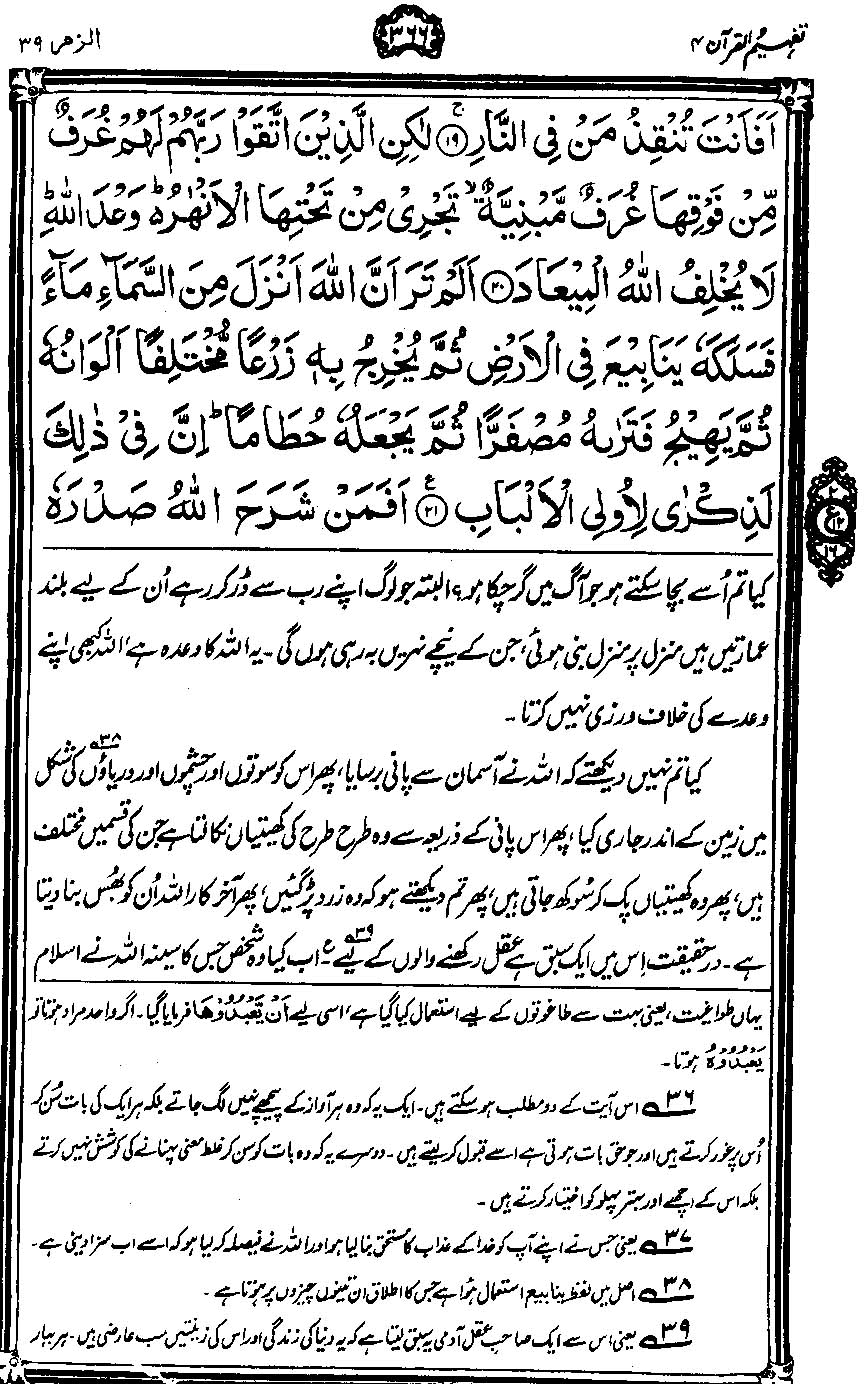 تفہیم القرآن ۴
۳۶۶
الزمر ۳۹
اَفَاَنْتَ تُنْقِذُ مَنْ فِی النَّارِ ۚ﴿۱۹﴾ لٰکِنِ الَّذِیْنَ اتَّقَوْا رَبَّہُمْ لَہُمْ غُرَفٌ
مِّنْ فَوْقِہَا غُرَفٌ مَّبْنِیَّۃٌ ۙ تَجْرِیْ مِنْ تَحْتِہَا الْاَنْہٰرُ ۬ؕ وَعْدَ اللّٰہِ ؕ
لَا یُخْلِفُ اللّٰہُ الْمِیْعَادَ ﴿۲۰﴾ اَلَمْ تَرَ اَنَّ اللّٰہَ اَنْزَلَ مِنَ السَّمَآءِ مَآءً
فَسَلَکَہٗ یَنَابِیْعَ فِی الْاَرْضِ ثُمَّ یُخْرِجُ بِہٖ زَرْعًا مُّخْتَلِفًا اَلْوَانُہٗ
ثُمَّ یَہِیْجُ فَتَرٰىہُ مُصْفَرًّا ثُمَّ یَجْعَلُہٗ حُطَامًا ؕ اِنَّ فِیْ ذٰلِکَ
لَذِکْرٰی لِاُولِی الْاَلْبَابِ ﴿۲۱﴾٪ اَفَمَنْ شَرَحَ اللّٰہُ صَدْرَہٗ
۲
ع ۱۲
۱۶
کیا تم اُسے بچا سکتے ہو جو آگ میں گر چکا ہو؟ البتہ جو لوگ اپنے رب سے ڈر کر رہے اُن کے لیے بلند
عمارتیں ہیں منزل پر منزل بنی ہوئی، جن کے نیچے نہریں بہ رہی ہوں گی۔ یہ اللہ کا وعدہ ہے، اللہ کبھی اپنے
وعدے کی خلاف ورزی نہیں کرتا۔
کیا تم نہیں دیکھتے کہ اللہ نے آسمان سے پانی برسایا، پھر اس کو سوتوں اور چشموں اور دریاؤں ۳۸؎ کی شکل
میں زمین کے اندر جاری کیا، پھر اس پانی کے ذریعہ سے وہ طرح طرح کی کھیتیاں نکالتا ہے جن کی قسمیں مختلف
ہیں، پھر وہ کھیتیاں پک کر سُوکھ جاتی ہیں، پھر تم دیکھتے ہو کہ وہ زرد پڑ گئیں، پھر آخر کار اللہ اُن کو بھُس بنا دیتا
ہے۔ درحقیقت اِس میں ایک سبق ہے عقل رکھنے والوں کے لیے ۳۹؎ ؏۔ اب کیا وہ شخص جس کا سینہ اللہ نے اسلام
یہاں طواغیت، یعنی بہت سے طاغوتوں کے لیے استعمال کیا گیا ہے، اسی لیے اَنْ یَّعْبُدُوْھَا فرمایا گیا۔ اگر واحد مراد ہوتا تو
یَعْبُدُوْہُ ہوتا۔
۳۶؎ اس آیت کے دو مطلب ہو سکتے ہیں۔ ایک یہ کہ وہ ہر آواز کے پیچھے نہیں لگ جاتے بلکہ ہر ایک کی بات سُن کر
اُس پر غور کرتے ہیں اور جو حق بات ہوتی ہے اسے قبول کر لیتے ہیں۔ دوسرے یہ کہ وہ بات کو سن کر غلط معنی پہنانے کی کوشش نہیں کرتے
بلکہ اس کے اچھے اور بہتر پہلو کو اختیار کرتے ہیں۔
۳۷؎ یعنی جس نے اپنے آپ کو خدا کے عذاب کا مستحق بنا لیا ہو اور اللہ نے فیصلہ کر لیا ہو کہ اسے اب سزا دینی ہے۔
۳۸؎ اصل میں لفظ ینابیع استعمال ہُوا ہے جس کا اطلاق ان تینوں چیزوں پر ہوتا ہے۔
۳۹؎ یعنی اس سے ایک صاحب عقل آدمی یہ سبق لیتا ہے کہ یہ دنیا کی زندگی اور اس کی زینتیں سب عارضی ہیں۔ ہر بہار